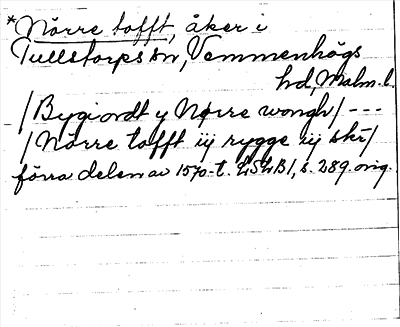 *Nörre tofft, åker i
Tullstorps sn, Vemmenhögs
hd, Malm. l.
/Bygiordt y Nørre wongh/ ---
/Nørre tofft iij rygge iij skr/
förra delen av 1570-t. LSLB1, s. 289. orig.